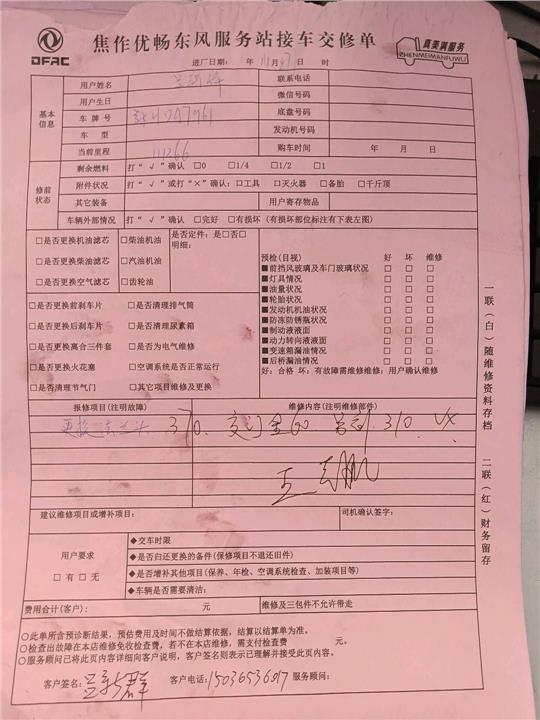 DFAC
焦作优畅东风服务站接车交修单
真美满服务
ZHENMEIMANFUWU
进厂日期： 年 11 月 日 时
基本信息
用户姓名 联系电话
用户生日 微信号码
车牌号 底盘号码
车型 发动机号码
当前里程 111266 购车时间 年 月 日
修前状态
剩余燃料 打“√”确认 □0 □1/4 □1/2 □1
附件状况 打“√”或打“×”确认：□工具 □灭火器 □备胎 □千斤顶
其它装备 用户寄存物品
车辆外部情况 打“√”确认 □完好 □有损坏（有损坏部位标注有下表左图）
□是否更换机油滤芯 □柴油机油 是否定件：是□否□
□是否更换柴油滤芯 □汽油机油 明细：
□是否更换空气滤芯 □齿轮油
□是否更换前刹车片 □是否清理排气筒
□是否更换后刹车片 □是否清理尿素箱
□是否更换离合三件套 □是否为电气维修
□是否更换火花塞 □空调系统是否正常运行
□是否清理节气门 □其它项目维修及更换
预检(目视) 好 坏 维修
■前挡风玻璃及车门玻璃状况 □ □ □
■灯具情况 □ □ □
■油量状况 □ □ □
■轮胎状况 □ □ □
■发动机机油状况 □ □ □
■防冻防锈瓶状况 □ □ □
■制动液液面 □ □ □
■动力转向液液面 □ □ □
■变速箱漏油情况 □ □ □
■后桥漏油情况 □ □ □
好：合格 坏：有故障需维修维修：用户确认维修
报修项目(注明故障) 维修内容(注明维修部件)
更换 370. 订金60 310.
王
建议维修项目或增补项目： 司机确认签字：
用户要求
□有□无
◆交车时限
◆是否归还更换的备件(保修项目不退还旧件)
◆是否增补其他项目(保养、年检、空调系统检查、加装项目等)
◆车辆是否需要清洁：
费用合计(客户)： 元 维修及三包件不允许带走
○此单所含预诊断结果，预估费用及时间不做结算依据，结算以结算单为准。
○检查出故障在本店维修免收检查费，若不在本店维修，需支付检查费 元。
○服务顾问已将此页内容详细向客户说明，客户签名则表示已理解并接受此页内容。
客户签名： 客户电话：15036536017 服务顾问：
一联（白）随维修资料存档
二联（红）财务留存